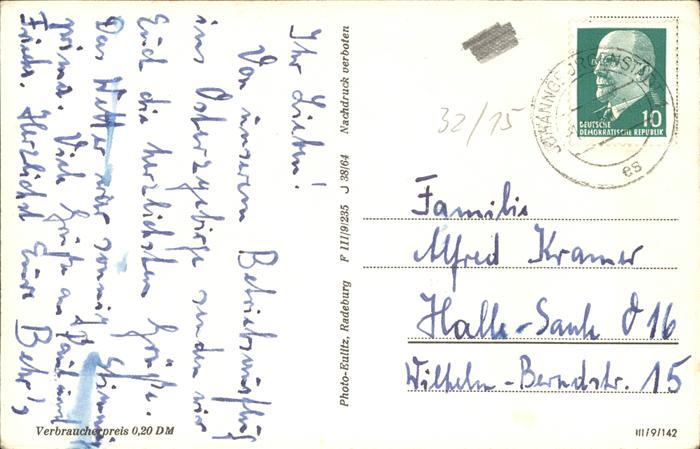 Ihr Lieben!
Von unserem Betriebsausflug
ins Osterzgebirge senden wir
Euch die herzlichsten Grüße.
Das Wetter war sonnig, Stimmung
prima. Viele Grüße an Paul und
Frieda. Herzlichst Eure Behr's
Verbraucherpreis 0,20 DM
Photo-Eulitz, Radeburg F III/9/235 J 38/64 Nachdruck verboten
32/15
DEUTSCHE
DEMOKRATISCHE REPUBLIK
10
JOHANNGEORGENSTADT
es
Familie
Alfred Kramer
Halle-Saale O 16
Wilhelm-Berndstr. 15
III/9/142